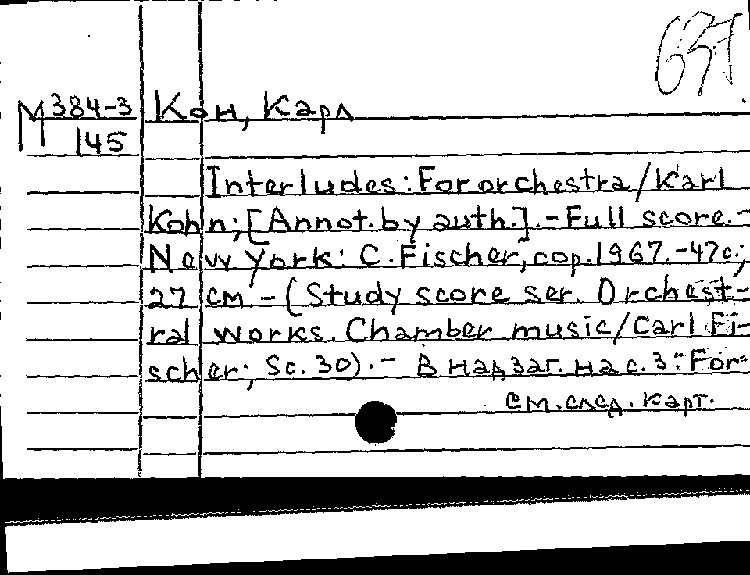 637
М 384-3 Кон, Карл
145
Interludes: For orchestra/Karl
Kohn; [Annot. by auth.]. - Full score. -
New York: C. Fischer, cop. 1967. - 47с.;
27 cm - (Study score ser. Orchest-
ral works. Chamber music/Carl Fi-
scher; Sc. 30). - В надзаг. на с. 3: "For
см. след. карт.